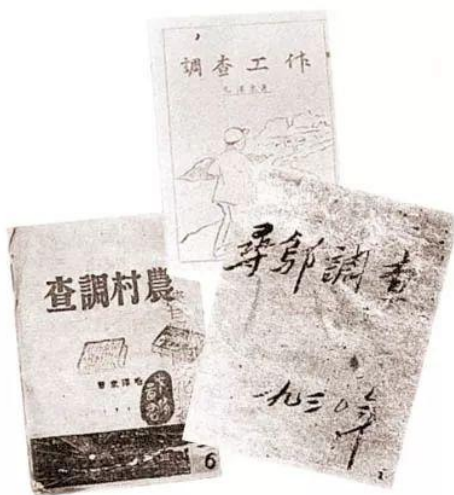 調查工作
毛澤東著
農村調查
毛澤東著
6
尋鄔調查
一九三〇年